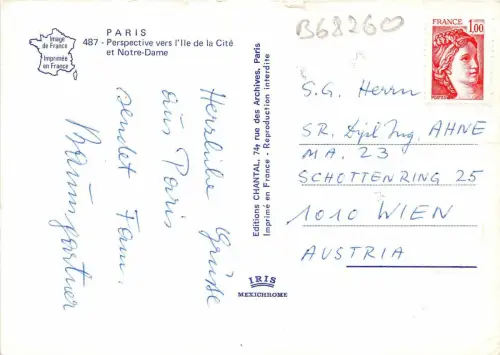 PARIS
487 - Perspective vers l'Ile de la Cité
et Notre-Dame
Image
de France
Imprimée
en France
B68260
FRANCE
1,00
POSTES
Herzliche Grüsse
aus Paris
sendet Fam.
Baumgartner
Editions CHANTAL, 74, rue des Archives, Paris
Imprimé en France - Reproduction interdite
S.G. Herrn
SR. Dipl Ing. AHNE
MA. 23
SCHOTTENRING 25
1010 WIEN
AUSTRIA
IRIS
MEXICHROME